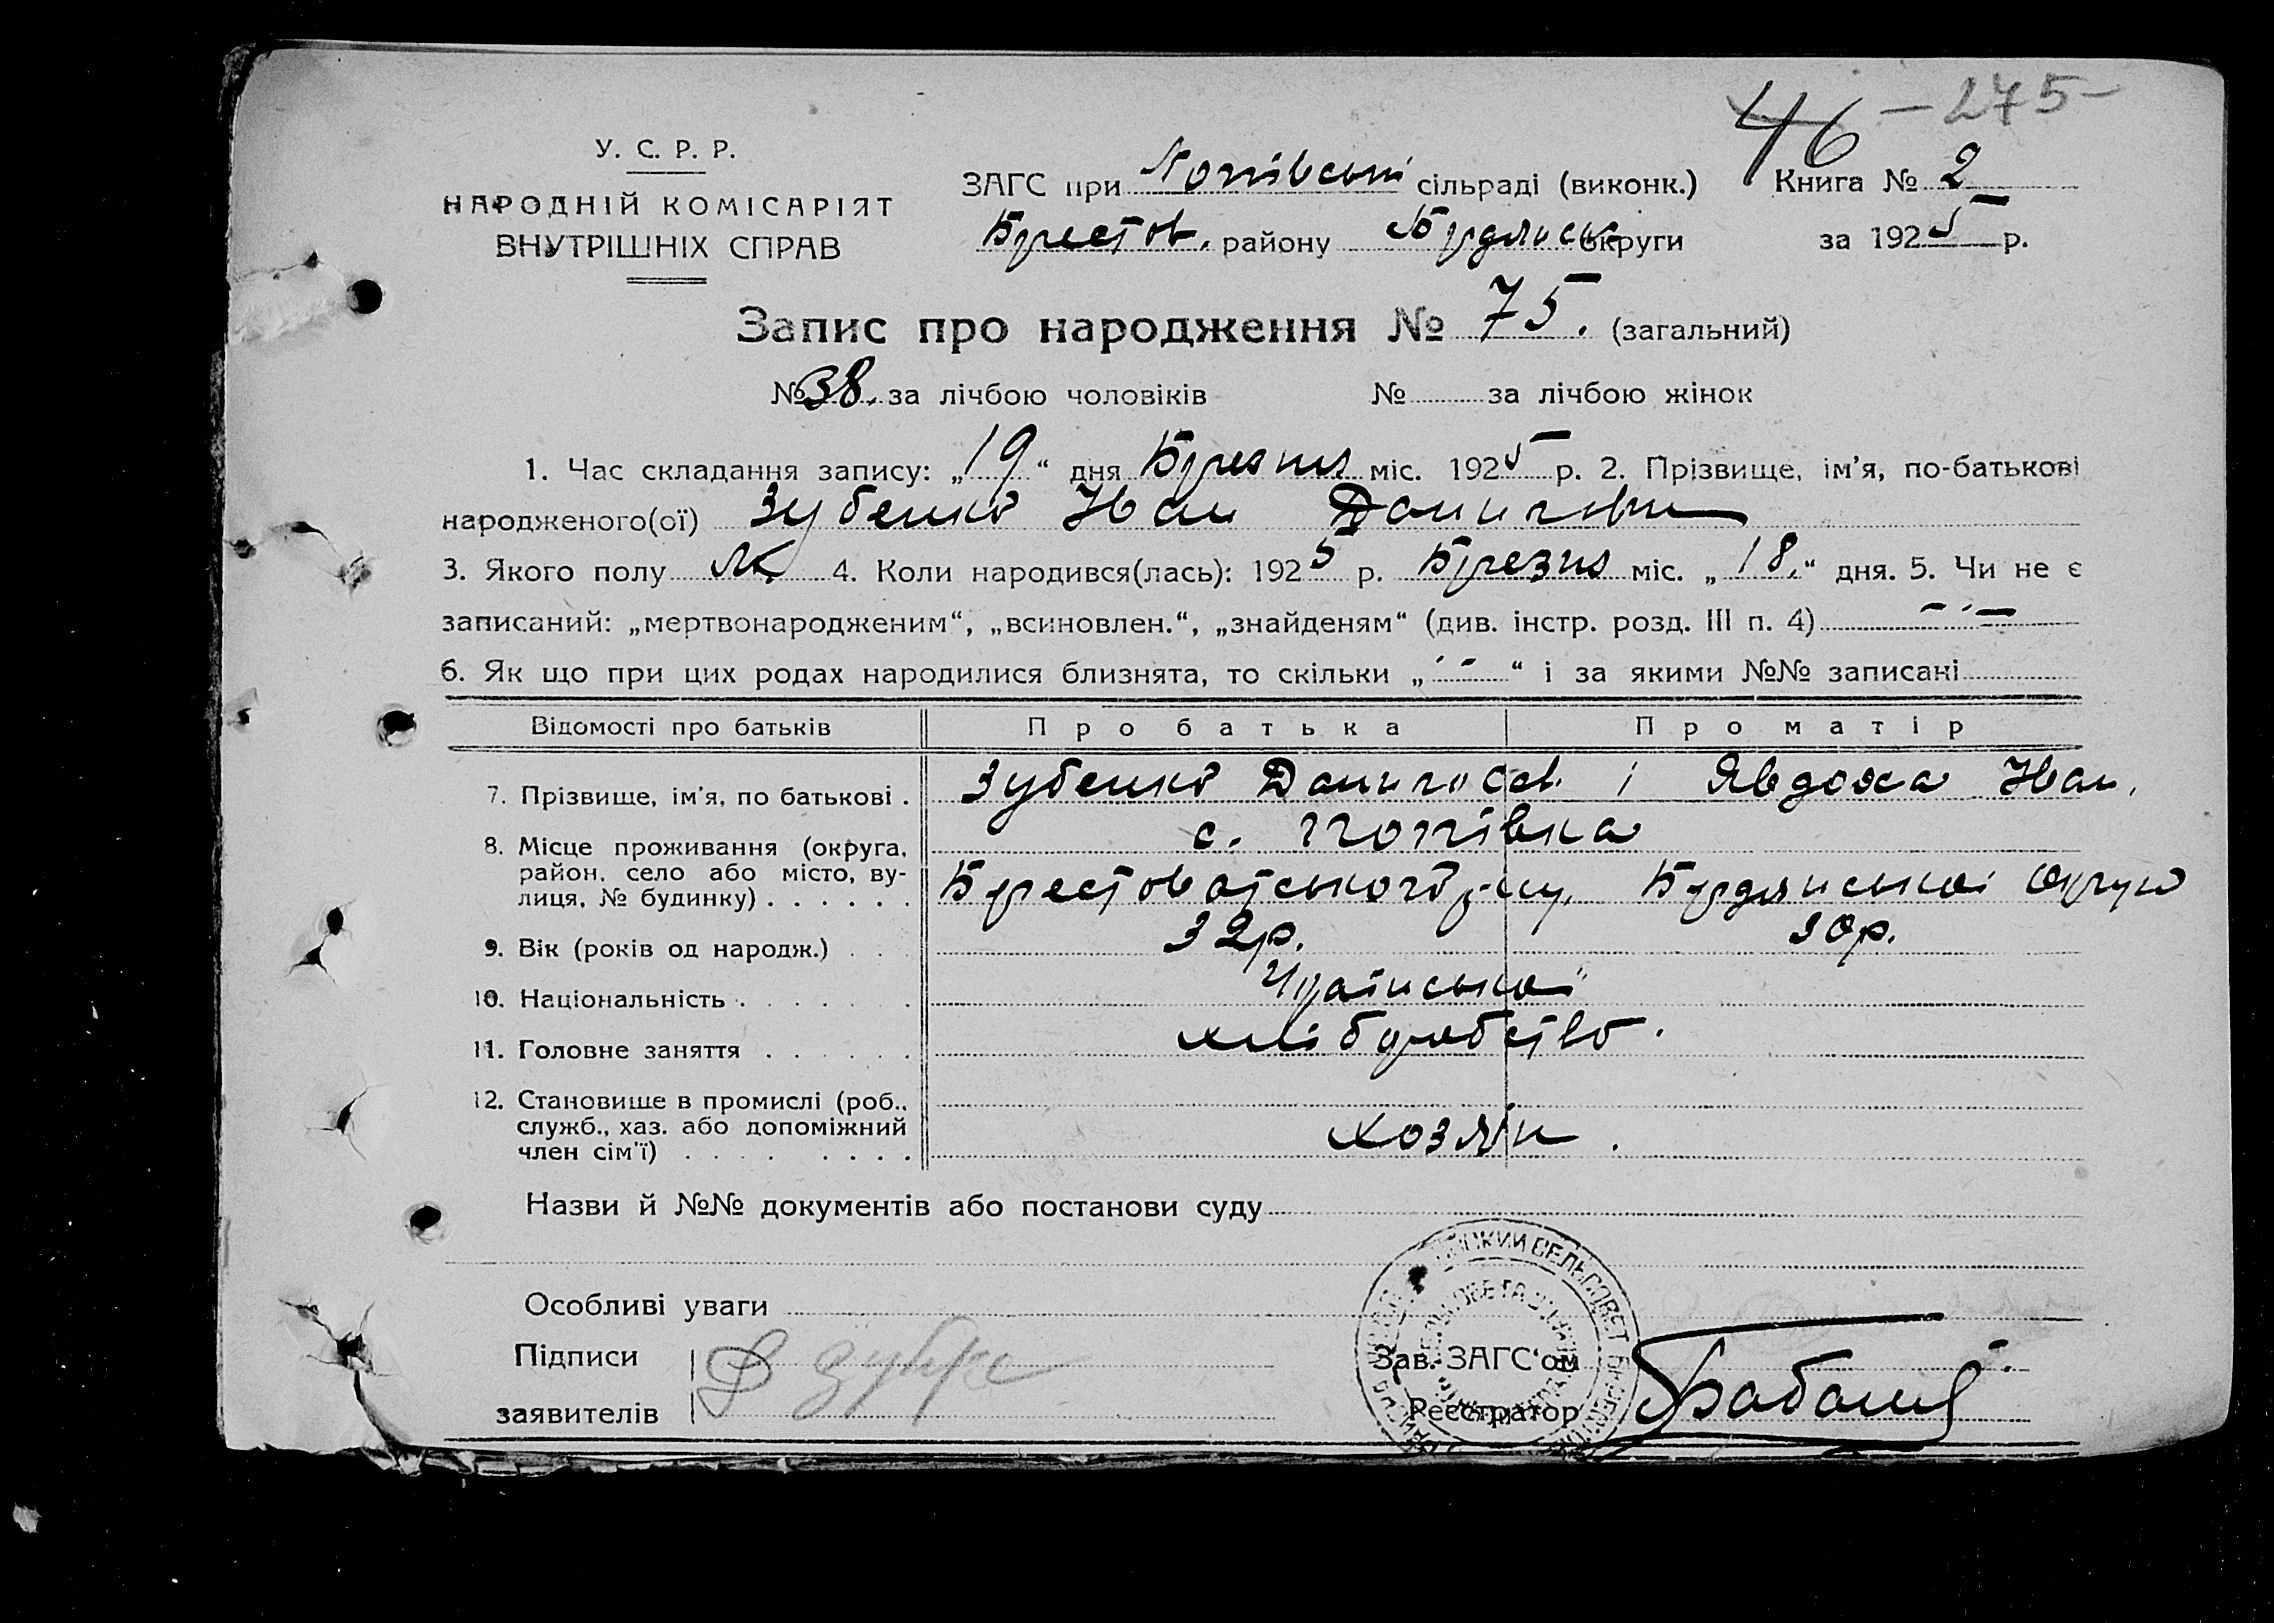 46 — 275 —
У. С. Р. Р.
НАРОДНІЙ КОМІСАРІЯТ
ВНУТРІШНІХ СПРАВ
ЗАГС при Попівські сільраді (виконк.) Книга № 2
Берестов. району Бердянськ округи за 1925 р.
Запис про народження № 75. (загальний)
№ 38. за лічбою чоловіків № за лічбою жінок
1. Час складання запису: „19“ дня Березня міс. 1925 р. 2. Прізвище, ім’я, по-батькові
народженого(ої) Зубенко Іван Данилович
3. Якого полу 4. Коли народився(лась): 1925 р. Березня міс. „18.“ дня. 5. Чи не є
записаний: „мертвонародженим“, „всиновлен.“, „знайденям“ (див. інстр. розд. III п. 4)
6. Як що при цих родах народилися близнята, то скільки „ “ і за якими №№ записані
Відомості про батьків Про батька Про матір
7. Прізвище, ім’я, по батькові . Зубенко Данило і Явдоха Іван.
8. Місце проживання (округа, район, село або місто, вулиця, № будинку) . . . . . . с. Попівка
Берестоватського р-ну, Бердянської округи
9. Вік (років од народж.) . . . 32 р. 30 р.
10. Національність . . . . . Української
11. Головне заняття . . . . . . хліборобство.
12. Становище в промислі (роб., служб., хаз. або допоміжний член сім’ї) . . . . . . . . хозяїн.
Назви й №№ документів або постанови суду
Особливі уваги
Підписи
заявителів
Зав. ЗАГС‘ом
Реєстратор